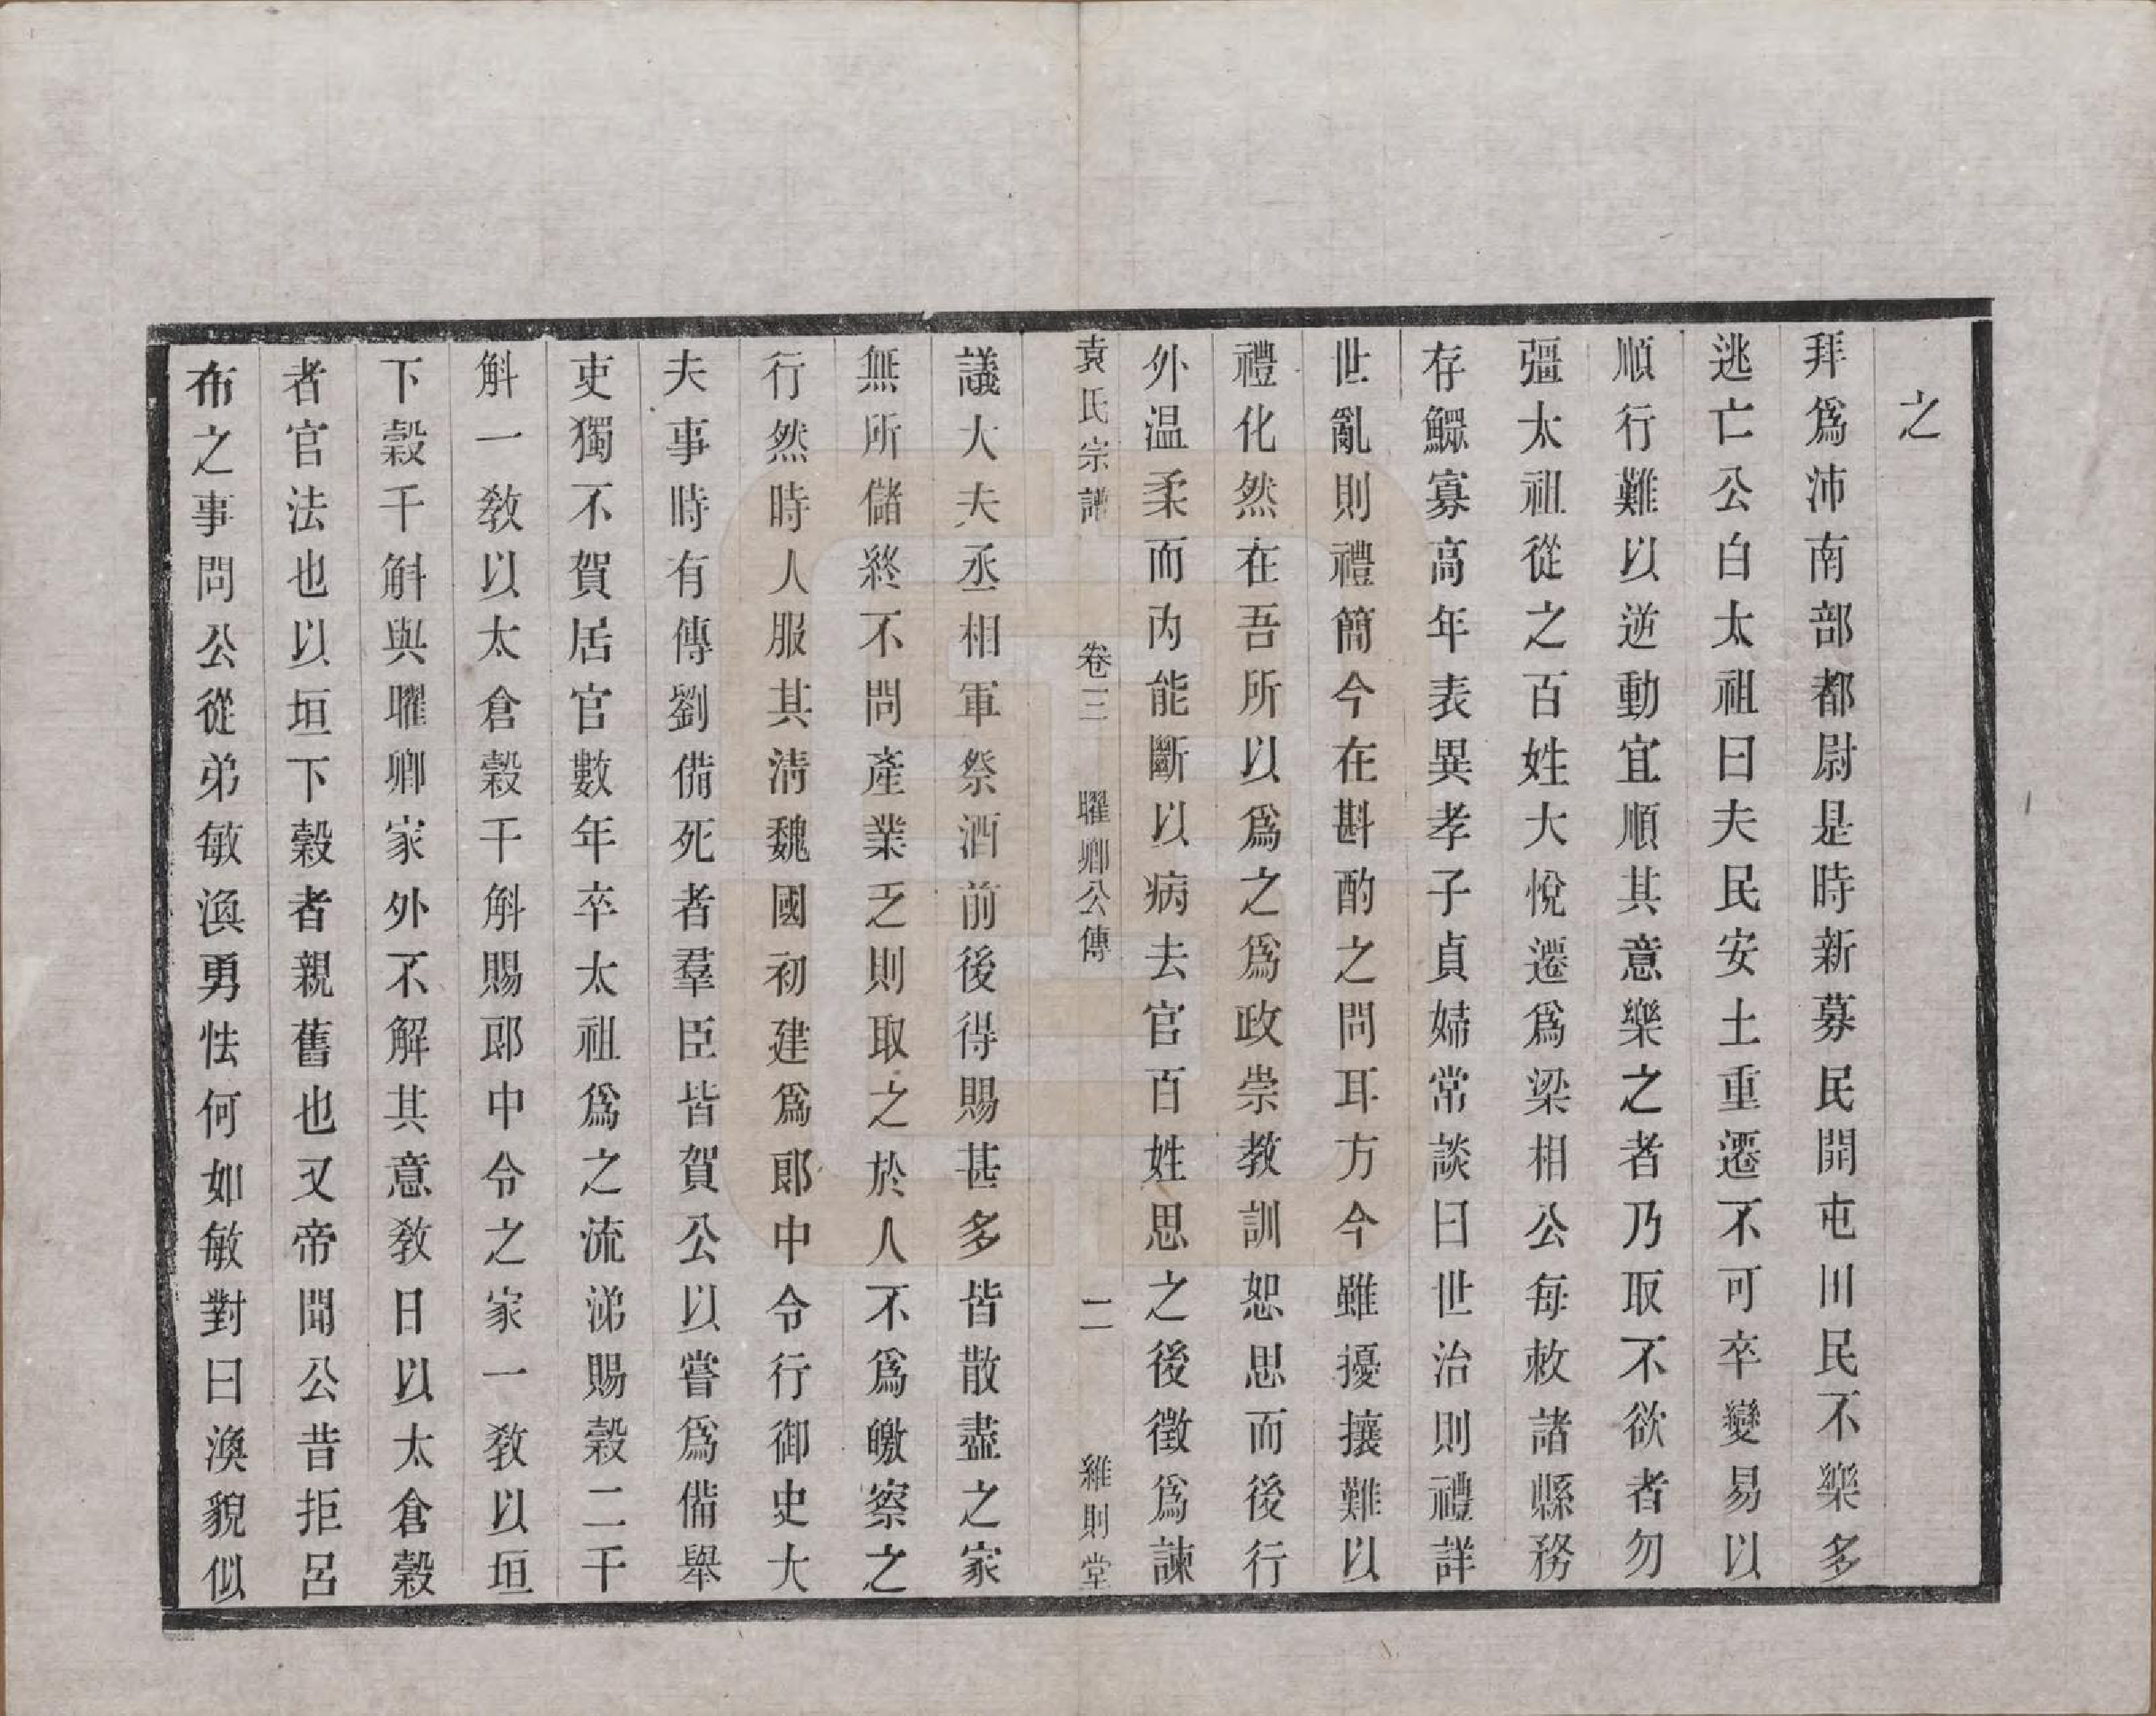 之
拜爲沛南部都尉是時新募民開屯田民不樂多
逃亡公白太祖曰夫民安土重遷不可卒變易以
順行難以逆動宜順其意樂之者乃取不欲者勿
彊太祖從之百姓大悅遷爲梁相公每敕諸縣務
存鰥寡高年表異孝子貞婦常談曰世治則禮詳
世亂則禮簡今在斟酌之問耳方今雖擾攘難以
禮化然在吾所以爲之爲政崇教訓恕思而後行
外温柔而内能斷以病去官百姓思之後徵爲諫
袁氏宗譜 卷三 曜卿公傳 二 維則堂
議大夫丞相軍祭酒前後得賜甚多皆散盡之家
無所儲終不問產業乏則取之於人不爲皦察之
行然時人服其清魏國初建爲郎中令行御史大
夫事時有傳劉備死者羣臣皆賀公以嘗爲備舉
吏獨不賀居官數年卒太祖爲之流涕賜穀二千
斛一教以太倉穀千斛賜郎中令之家一教以垣
下穀千斛與曜卿家外不解其意教曰以太倉穀
者官法也以垣下穀者親舊也又帝聞公昔拒呂
布之事問公從弟敏渙勇怯何如敏對曰渙貌似